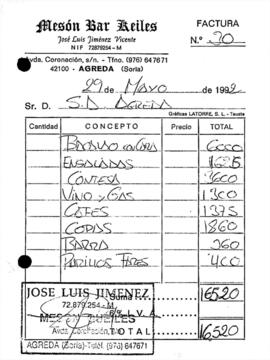 Mesón Bar Keiles
José Luis Jiménez Vicente
NIF 72879254-M
FACTURA
N.º 30
Avda. Coronación, s/n. - Tfno. (976) 647671
42100 - AGREDA (Soria)
29 de Mayo de 1992
Sr. D. S.D. AGREDA
Gráficas LATORRE, S. L. - Tauste
Cantidad CONCEPTO Precio TOTAL
6000
ENSALADAS 1625
3600
VINO y GAS 1300
CAFES 1375
COPAS 1860
BARRA 360
400
JOSE LUIS JIMENEZ
72.879.254-M
Suma 16520
% I. V. A.
Avda. Coronación,
AGREDA (Soria)-Teléf. (976) 647671
TOTAL 16520